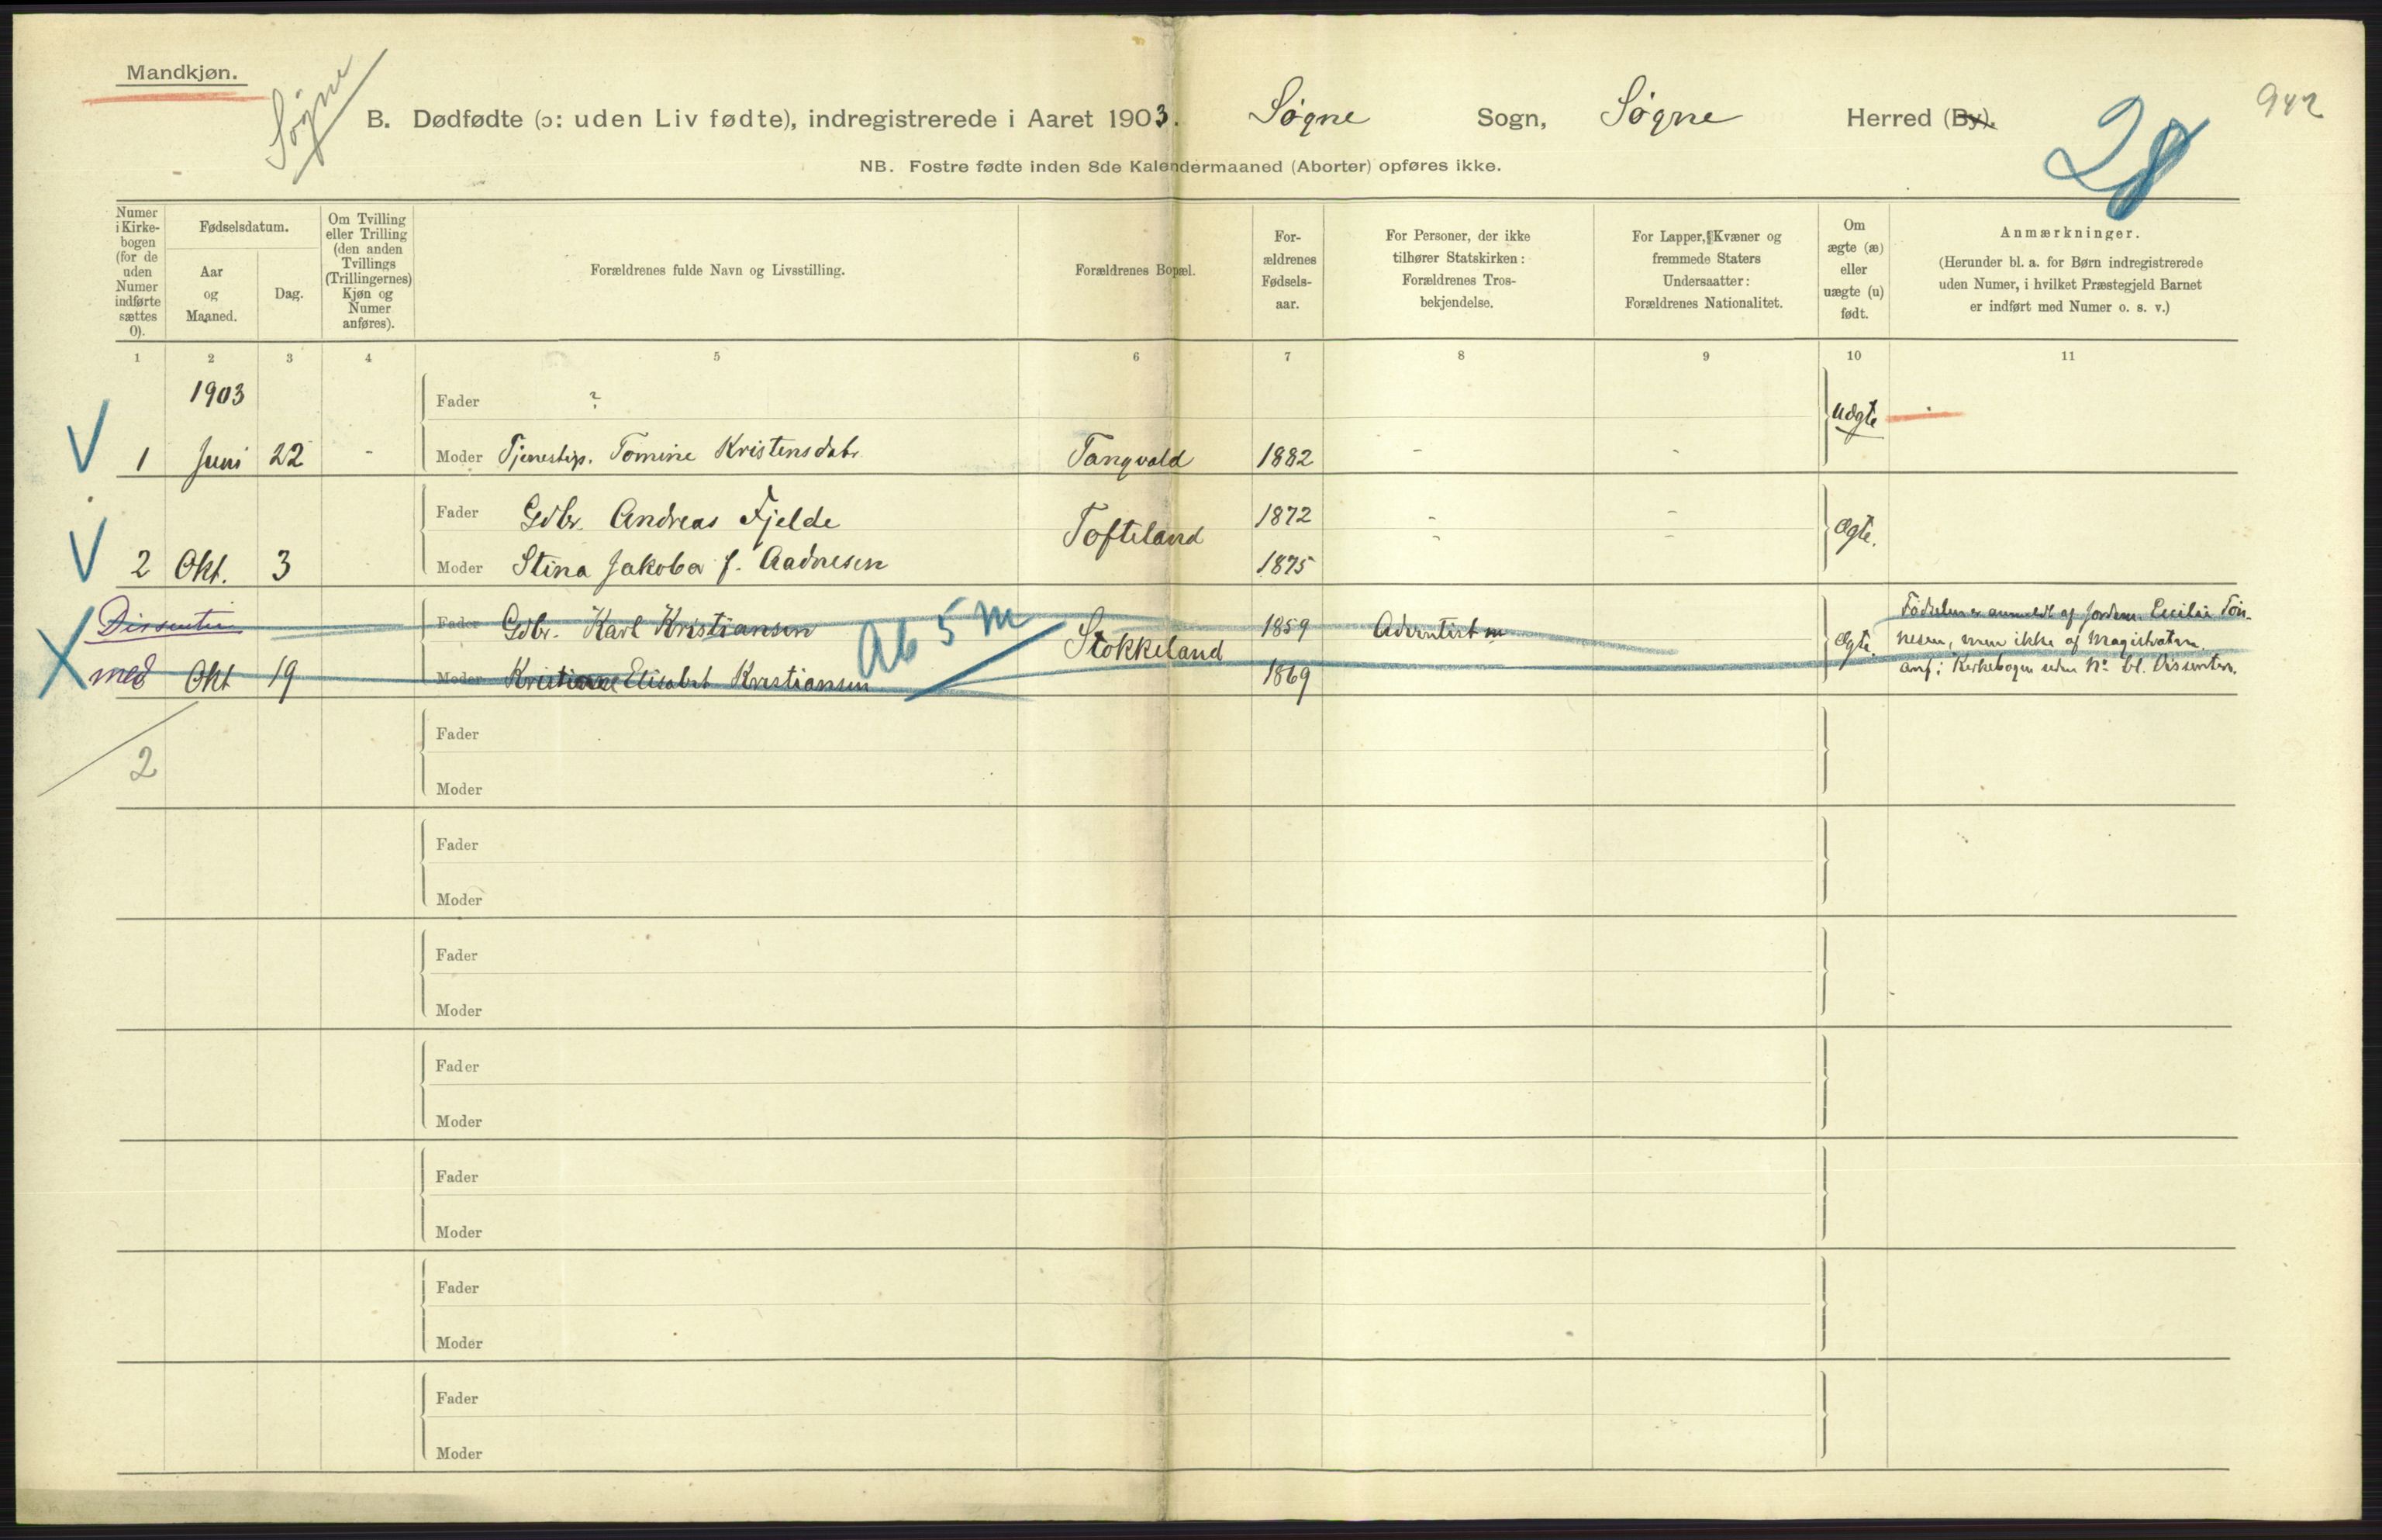 Mandkjøn.
Søgne
942
28
B. Dødfødte (ɔ: uden Liv fødte), indregistrerede i Aaret 1903. Søgne Sogn, Søgne Herred (By).
NB. Fostre fødte inden 8de Kalendermaaned (Aborter) opføres ikke.
Numer i Kirkebogen (for de uden Numer indførte sættes 0).
Fødselsdatum.
Aar og Maaned.
Dag.
Om Tvilling eller Trilling (den anden Tvillings (Trillingernes) Kjøn og Numer anføres).
Forældrenes fulde Navn og Livsstilling.
Forældrenes Bopæl.
Forældrenes Fødselsaar.
For Personer, der ikke tilhører Statskirken: Forældrenes Trosbekjendelse.
For Lapper, Kvæner og fremmede Staters Undersaatter: Forældrenes Nationalitet.
Om ægte (æ) eller uægte (u) født.
Anmærkninger.
(Herunder bl. a. for Børn indregistrerede uden Numer, i hvilket Præstegjeld Barnet er indført med Numer o. s. v.)
1 2 3 4 5 6 7 8 9 10 11
1903
Fader ?
Uægte
V 1 Juni 22 - Moder Tjenestep. Tomine Kristensdatr Tangvald 1882 - -
Fader Gdbr. Andreas Fjelde Tofteland 1872 - - Ægte.
V 2 Okt. 3 Moder Stina Jakoba f. Aadnesen 1875 - -
Dissenter Fader Gdbr. Karl Kristiansen Stokkeland 1859 Adventist Ægte. Fødselen er anmeldt af Jordem. Cecilie Tøn-
Ab 5 M
nesen, men ikke af Magistraten.
X med Okt 19 Moder Kristiane Elisabet Kristiansen 1869 anf. i Kirkebogen uden No bl. Dissentere.
2
Fader
Moder
Fader
Moder
Fader
Moder
Fader
Moder
Fader
Moder
Fader
Moder
Fader
Moder